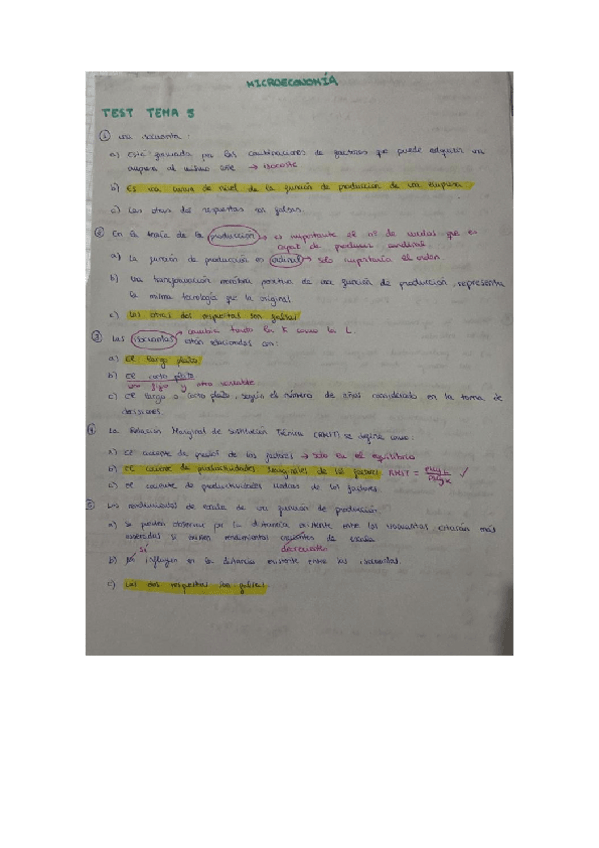 MICROECONOMÍA
TEST TEMA 5
① Una isocuanta:
a) Está formada por las combinaciones de factores que puede adquirir una
empresa al mismo coste → isocoste
b) Es una curva de nivel de la función de producción de una empresa.
c) Las otras dos respuestas son falsas.
② En la teoría de la producción → es importante el nº de que es
capaz de producir
a) La función de producción es ordinal → solo importaría el orden
b) Una transformación monótona positiva de una función de producción, representa
la misma tecnología que la original
c) Las otras dos respuestas son falsas
→ cambia tanto la K como la L.
③ Las isocuantas están relacionadas con:
a) El largo plazo
b) El corto plazo
uno fijo y otro variable
c) El largo o corto plazo, según el número de años considerado en la toma de
decisiones.
④ La Relación Marginal de Sustitución Técnica (RMST) se define como:
a) El cociente de precios de los factores → solo en el equilibrio
b) El cociente de productividades marginales de los factores RMST = PMg L / PMg K ✓
c) El cociente de productividades medias de los factores.
⑤ Los rendimientos de escala de una función de producción:
a) Se pueden observar por la distancia existente entre las isocuantas, estarán más
si existen rendimientos crecientes de escala
sí
b) No influyen en la distancia existente entre las isocuantas.
c) Las dos respuestas son falsas